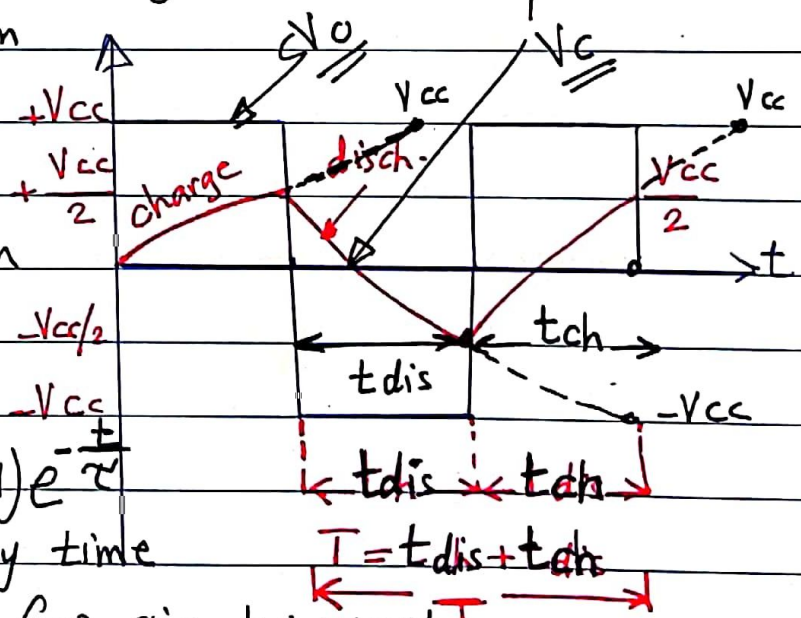 Vo
Vc
+Vcc
Vcc
Vcc
+ Vcc/2
charge
disch.
Vcc/2
t
-Vcc/2
tch
tdis
-Vcc
-Vcc
)e^-t/τ
tdis
tch
y time
T = tdis + tch
T